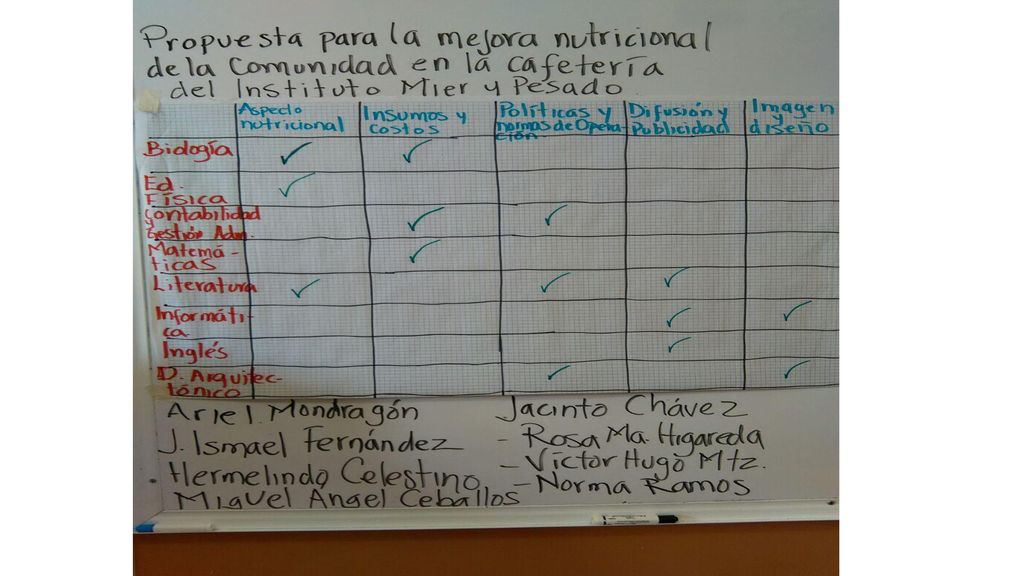 Propuesta para la mejora nutricional
de la Comunidad en la cafetería
del Instituto Mier y Pesado
Aspecto nutricional
Insumos y costos
Políticas y normas de Opera-ción
Difusión y Publicidad
Imagen y diseño
Biología ✓ ✓
Ed. Física ✓
Contabilidad y Gestión Adm. ✓ ✓
Matemá-ticas ✓
Literatura ✓ ✓ ✓
Informáti-ca ✓ ✓
Inglés ✓
D. Arquitec-tónico ✓ ✓
Ariel Mondragón
Jacinto Chávez
J. Ismael Fernández
- Rosa Ma. Higareda
Hermelindo Celestino
- Víctor Hugo Mtz.
Miguel Angel Ceballos
- Norma Ramos